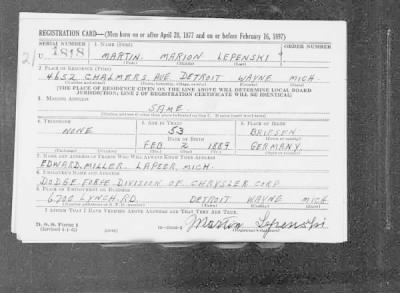 REGISTRATION CARD—(Men born on or after April 28, 1877 and on or before February 16, 1897)
SERIAL NUMBER 1. NAME (Print) ORDER NUMBER
1818 MARTIN MARION LEPENSKI
(First) (Middle) (Last)
2. PLACE OF RESIDENCE (Print)
4652 CHALMERS AVE DETROIT WAYNE MICH.
(Number and street) (Town, township, village, or city) (County) (State)
[THE PLACE OF RESIDENCE GIVEN ON THE LINE ABOVE WILL DETERMINE LOCAL BOARD
JURISDICTION; LINE 2 OF REGISTRATION CERTIFICATE WILL BE IDENTICAL]
3. MAILING ADDRESS
SAME
4. TELEPHONE 5. AGE IN YEARS 6. PLACE OF BIRTH
NONE 53 BRIESEN
DATE OF BIRTH (Town or county)
FEB 2 1889 GERMANY
(Mo.) (Day) (Yr.) (State or country)
7. NAME AND ADDRESS OF PERSON WHO WILL ALWAYS KNOW YOUR ADDRESS
EDWARD MILLER LAPEER, MICH.
8. EMPLOYER'S NAME AND ADDRESS
DODGE FORGE DIVISION OF CHRYSLER CORP
9. PLACE OF EMPLOYMENT OR BUSINESS
6700 LYNCH RD. DETROIT WAYNE MICH
(Number and street or R. F. D. number) (Town) (County) (State)
I AFFIRM THAT I HAVE VERIFIED ABOVE ANSWERS AND THAT THEY ARE TRUE.
D. S. S. Form 1
(Revised 4-1-42) (over) Martin Lepenski
(Registrant's signature)